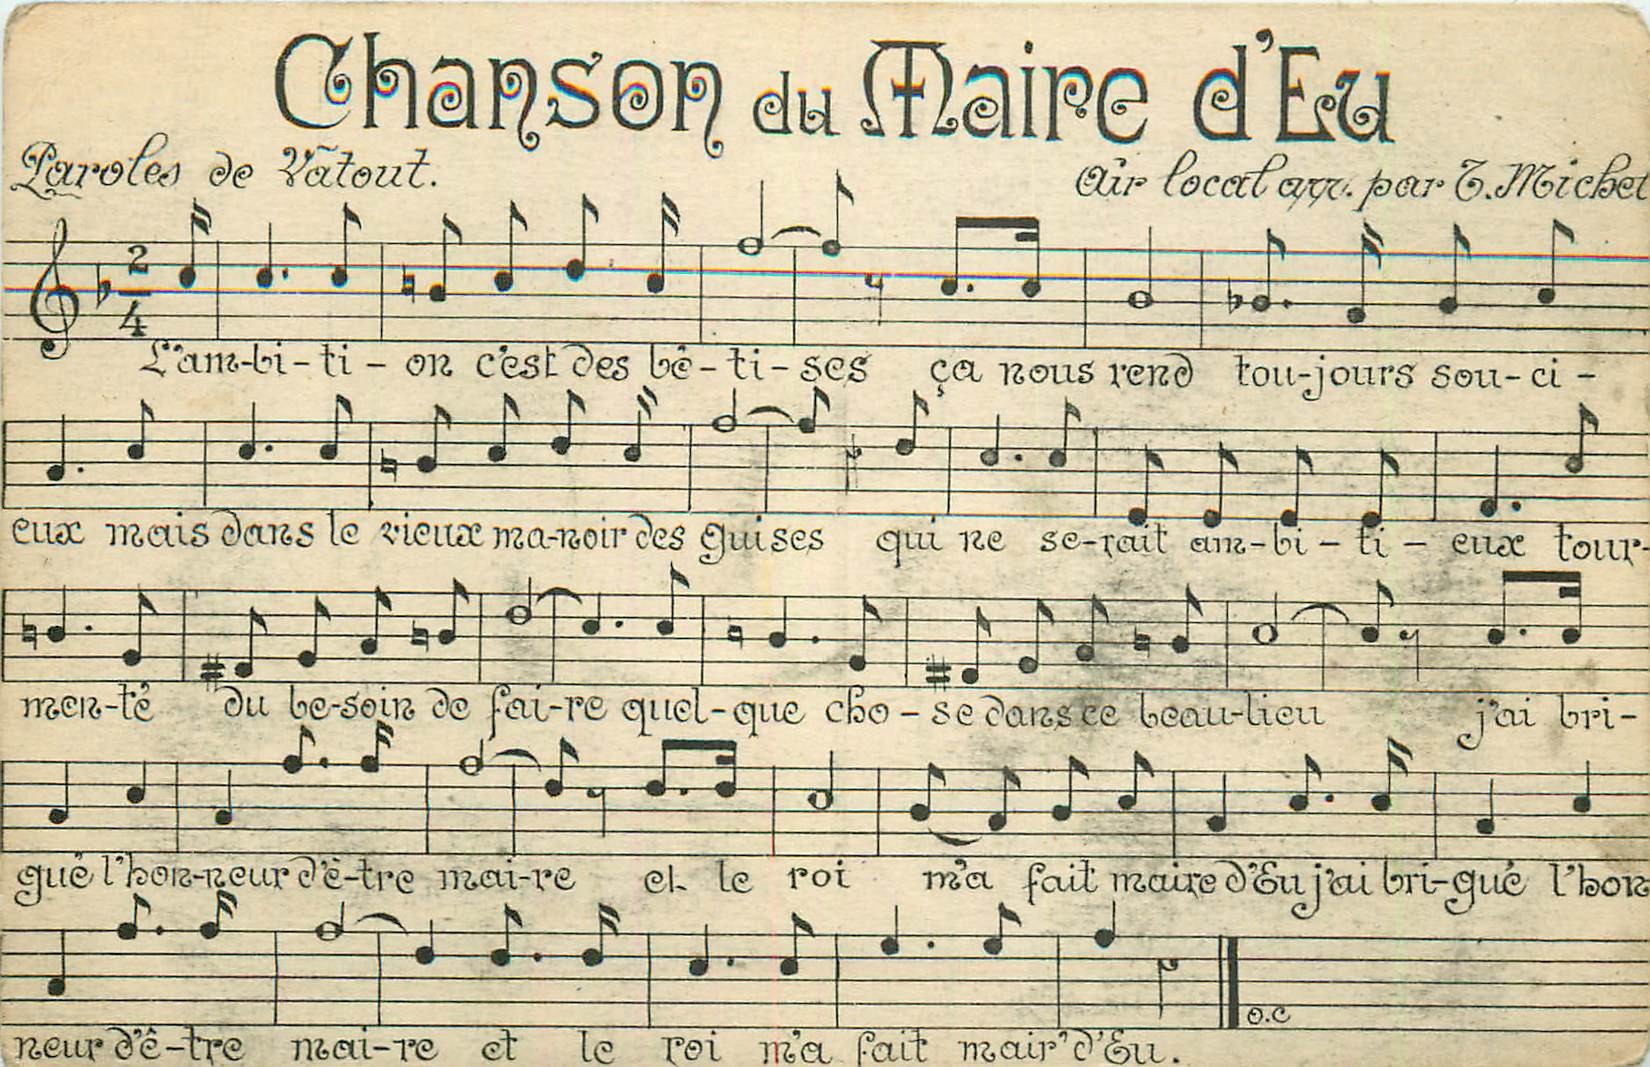 Chanson du Maire d'Eu
Paroles de Vãtout.
Air local arr. par T. Michel
2
4
L'am-bi-ti-on c'est des bê-ti-ses ça nous rend tou-jours sou-ci-
eux mais dans le vieux ma-noir des guises qui ne se-rait am-bi-ti-eux tour-
men-té du be-soin de fai-re quel-que cho-se dans ce beau-lieu j'ai bri-
gué l'hon-neur d'ê-tre mai-re et le roi m'a fait maire d'Eu j'ai bri-gué l'hon
neur d'ê-tre mai-re et le roi m'a fait mair' d'Eu.
D.C